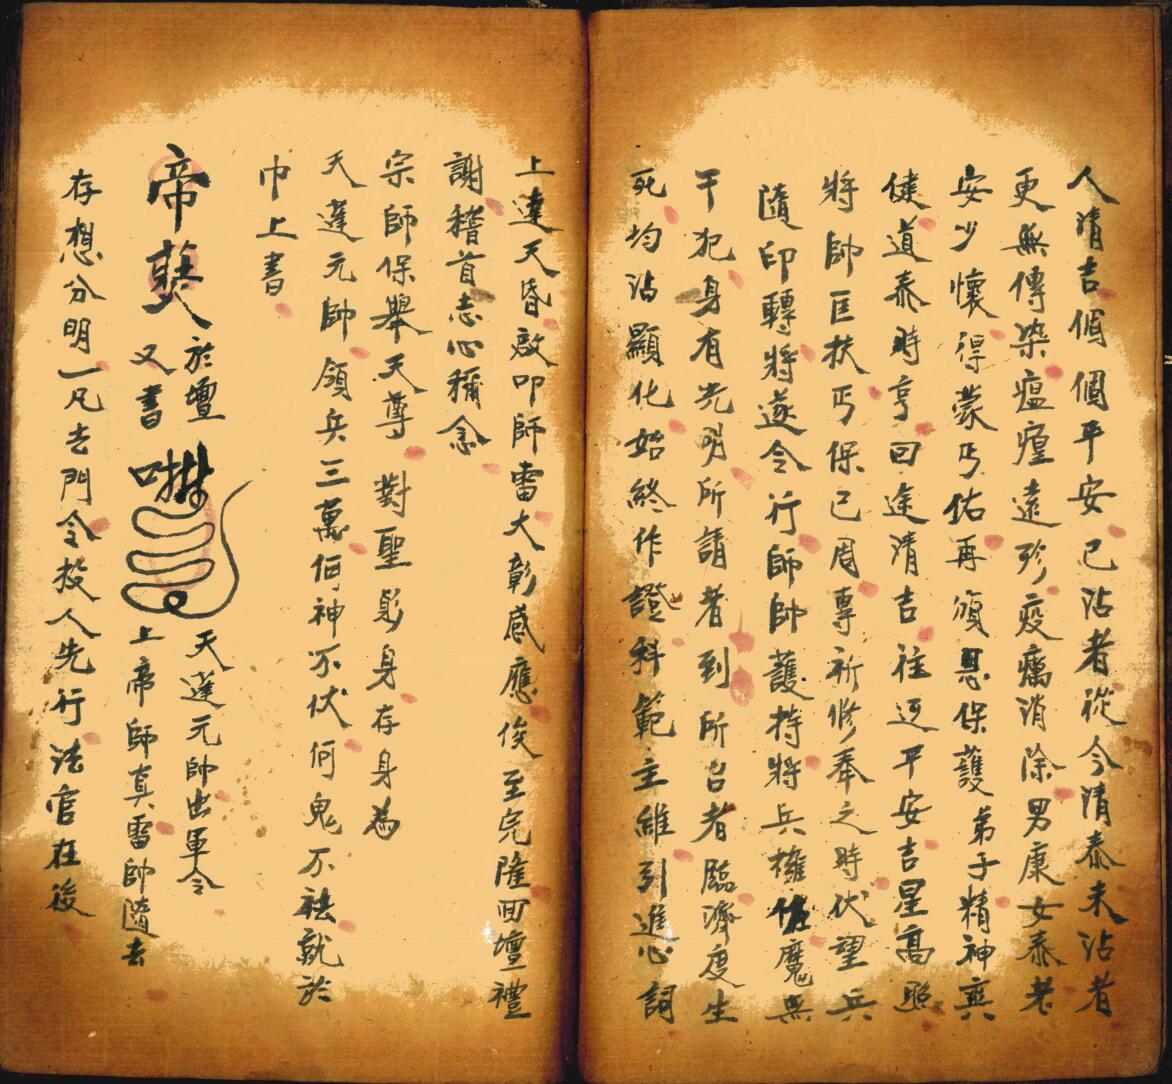 人清吉個個平安已沾者從今清泰未沾者
更無傳染瘟㾮遠殄疫癘消除男康女泰老
安少懷得蒙丐佑再頒恩保護弟子精神爽
健道泰時亨回途清吉往迓平安吉星高照
將帥匡扶丐保已周專祈修奉之時伏望兵
隨印轉將逐令行師帥護持將兵擁佐魔無
干犯身有光明所請者到所召者臨濟度生
死均沾顯化始終作證科範主維引進心詞
上達天昏啟叩師雷大彰感應俟至完隆回壇禮
謝稽首志心稱念
宗師保舉天尊對聖彭身存身為
天蓬元帥領兵三萬何神不伏何鬼不祛就於
巾上書
帝 於壇又書
天蓬元帥出軍令
上帝師真雷帥隨去
存想分明一凡去門令投人先行法官在後